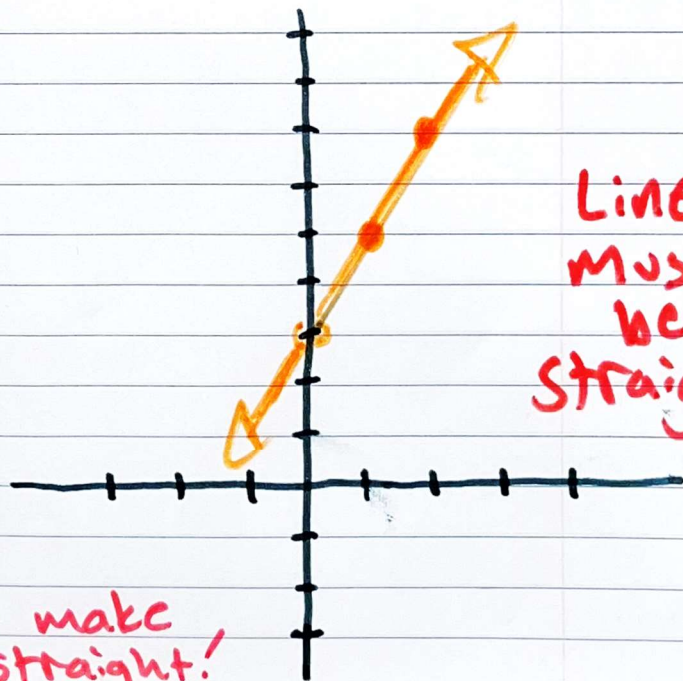 Line
Mus
be
Straig
make
straight!